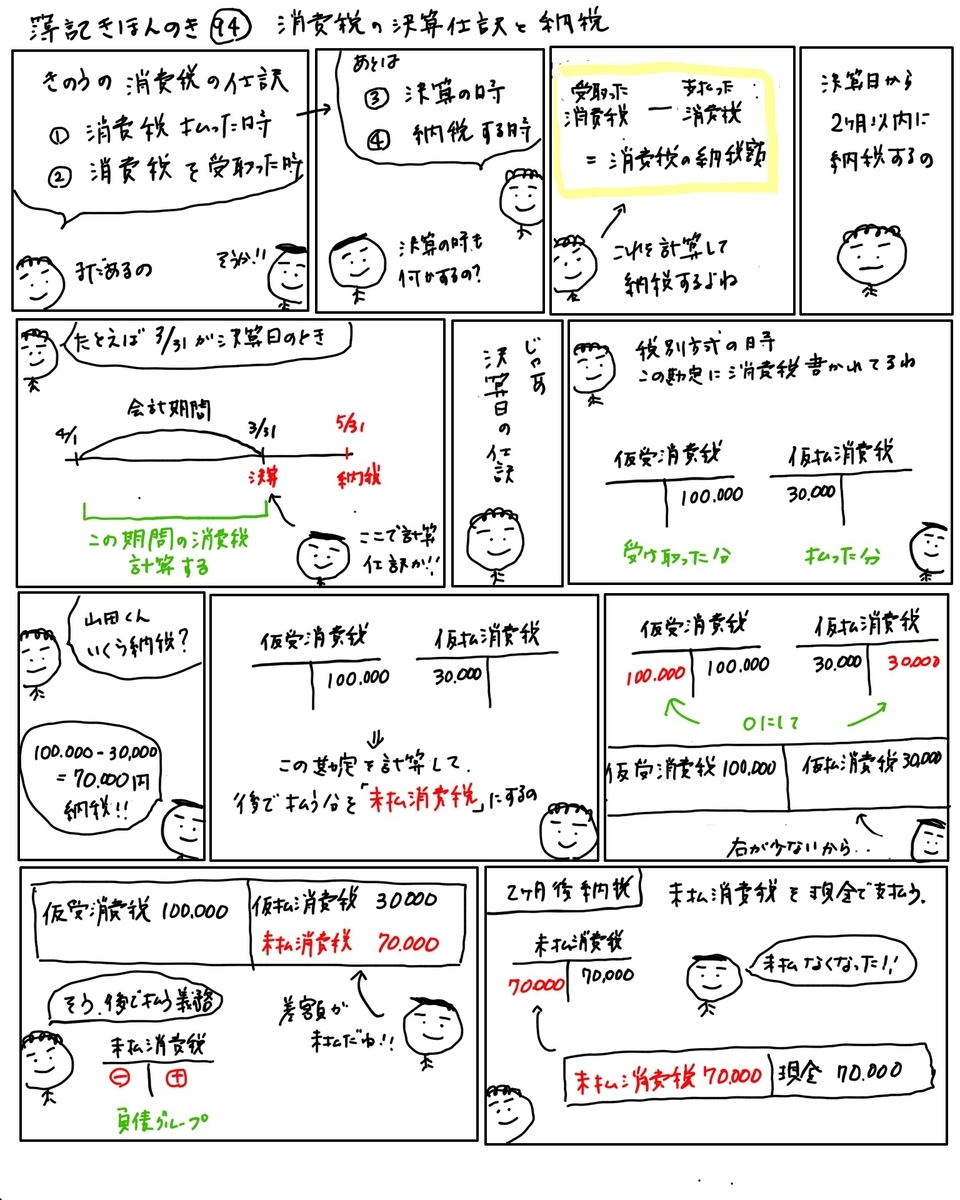 簿記きほんのき 94 消費税の決算仕訳と納税
きのうの 消費税の仕訳
① 消費税 払った時
② 消費税を受取った時
まだあるの
そうか!!
あとは
③ 決算の時
④ 納税する時
決算の時も
何かするの?
受取った 支払った
消費税 ー 消費税
= 消費税の納税額
これを計算して
納税するよね
決算日から
2ヶ月以内に
納税するの
たとえば 3/31が決算日のとき
会計期間
4/1 3/31 5/31
決算 納税
この期間の消費税
計算する
ここで計算
仕訳か!!
じゃあ
決算日の仕訳
税別方式の時
この勘定に消費税書かれてるね
仮受消費税 仮払消費税
100.000 30.000
受け取った分 払った分
山田くん
いくら納税?
100.000-30,000
=70.000円
納税!!
仮受消費税 仮払消費税
100.000 30,000
⇓
この勘定を計算して、
後で払う分を「未払消費税」にするの
仮受消費税 仮払消費税
100.000 100.000 30.000 30.000
0にして
仮受消費税 100.000 仮払消費税 30,000
右が少ないから..
仮受消費税 100.000 仮払消費税 30000
未払消費税 70.000
そう、後で払う義務
未払消費税
㊀ ㊉
負債グループ
差額が
未払だね!!
2ヶ月後納税 未払消費税を現金で支払う.
未払消費税
70000 70,000
未払なくなった!!
未払消費税 70.000 現金 70.000